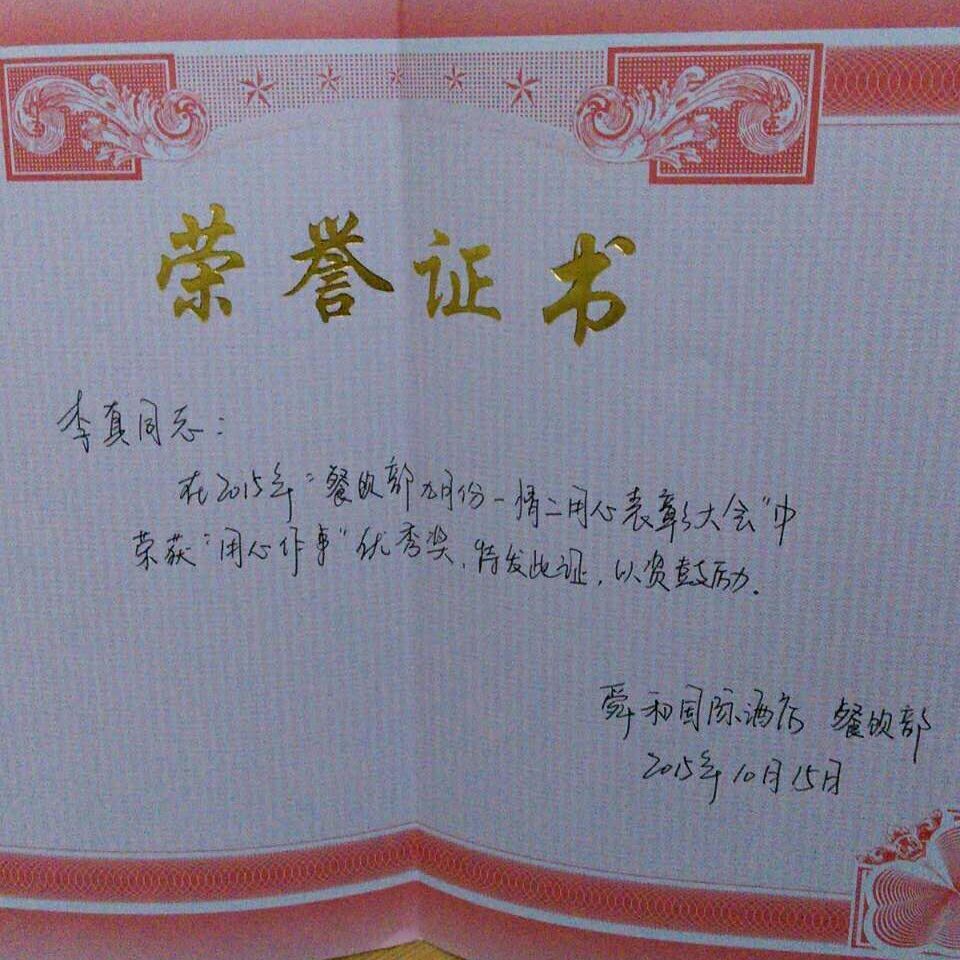 荣誉证书
李真同志：
在2015年“餐饮部九月份一情二用心表彰大会”中
荣获“用心作事”优秀奖，特发此证，以资鼓励.
舜和国际酒店 餐饮部
2015年10月15日